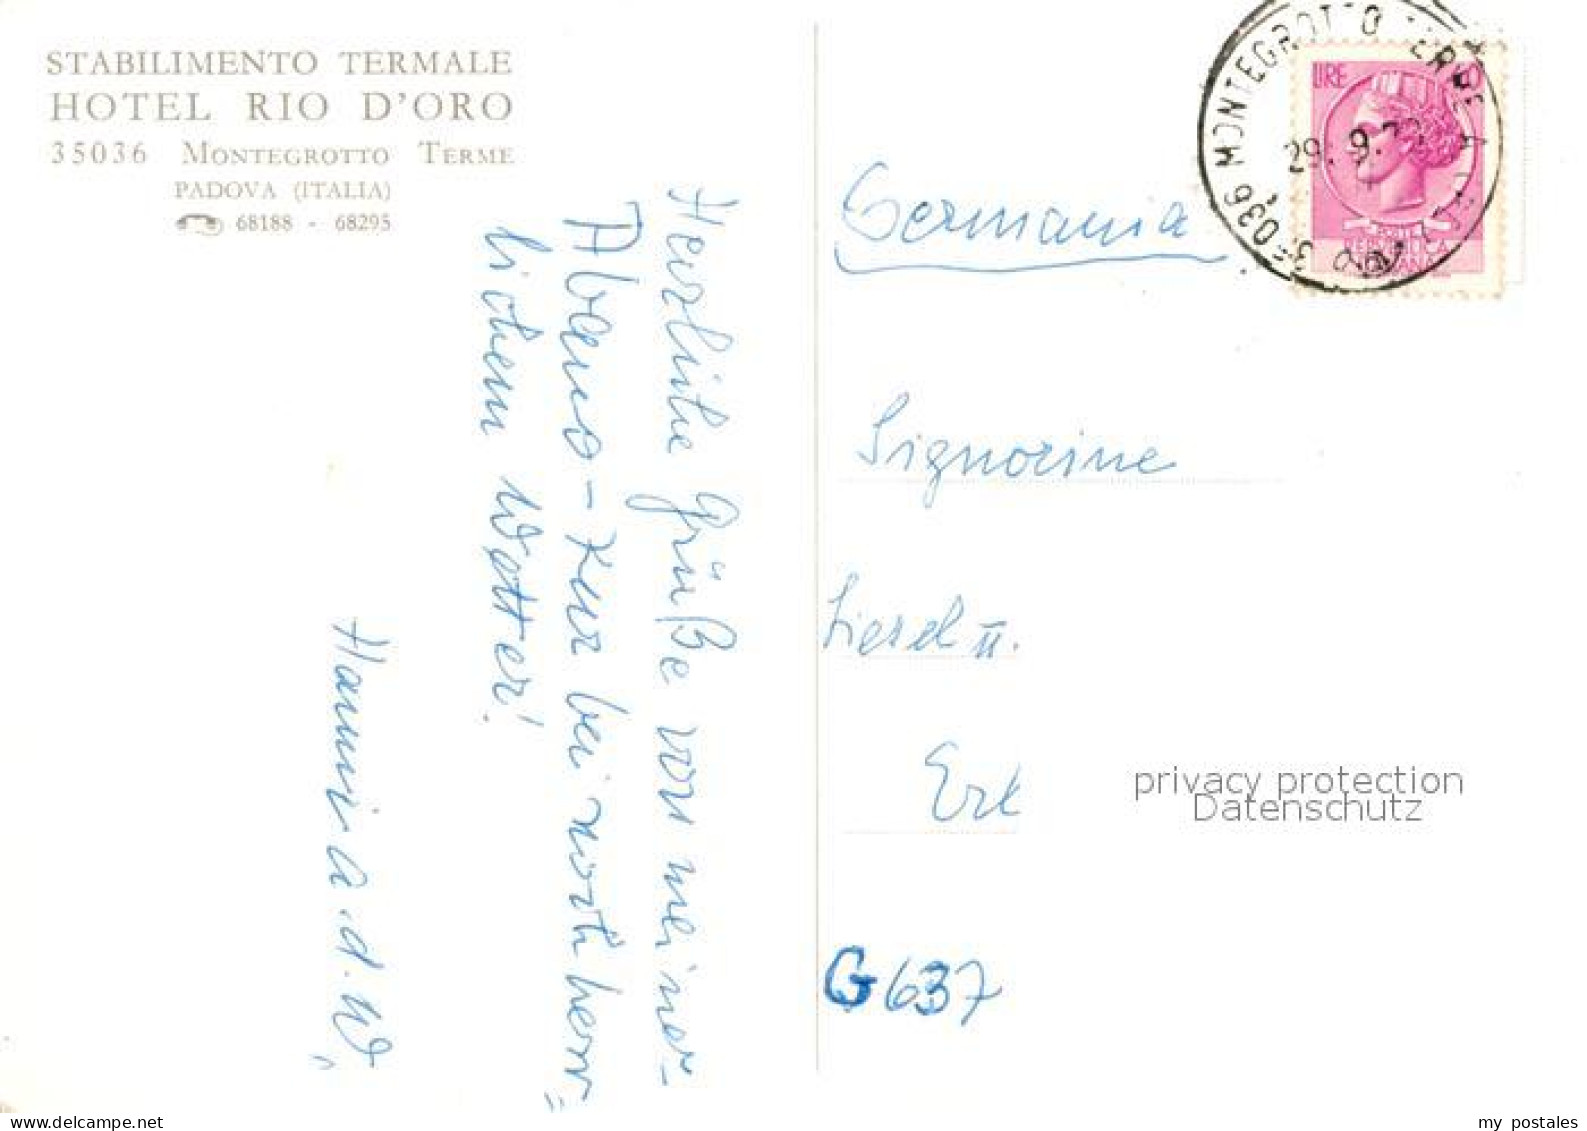 STABILIMENTO TERMALE
HOTEL RIO D'ORO
35036 MONTEGROTTO TERME
PADOVA (ITALIA)
68188 - 68295
Herzliche Grüße von meiner
Abano-Kur bei noch herr=
lichem Wetter!
Hanni a. d. W.
35036 MONTEGROTTO TERME
29.9.
LIRE
POSTE
REPUBBLICA
ITALIANA
Germania
Signorine
Liesel u.
Erk
privacy protection
Datenschutz
G 637
www.delcampe.net
my_postales